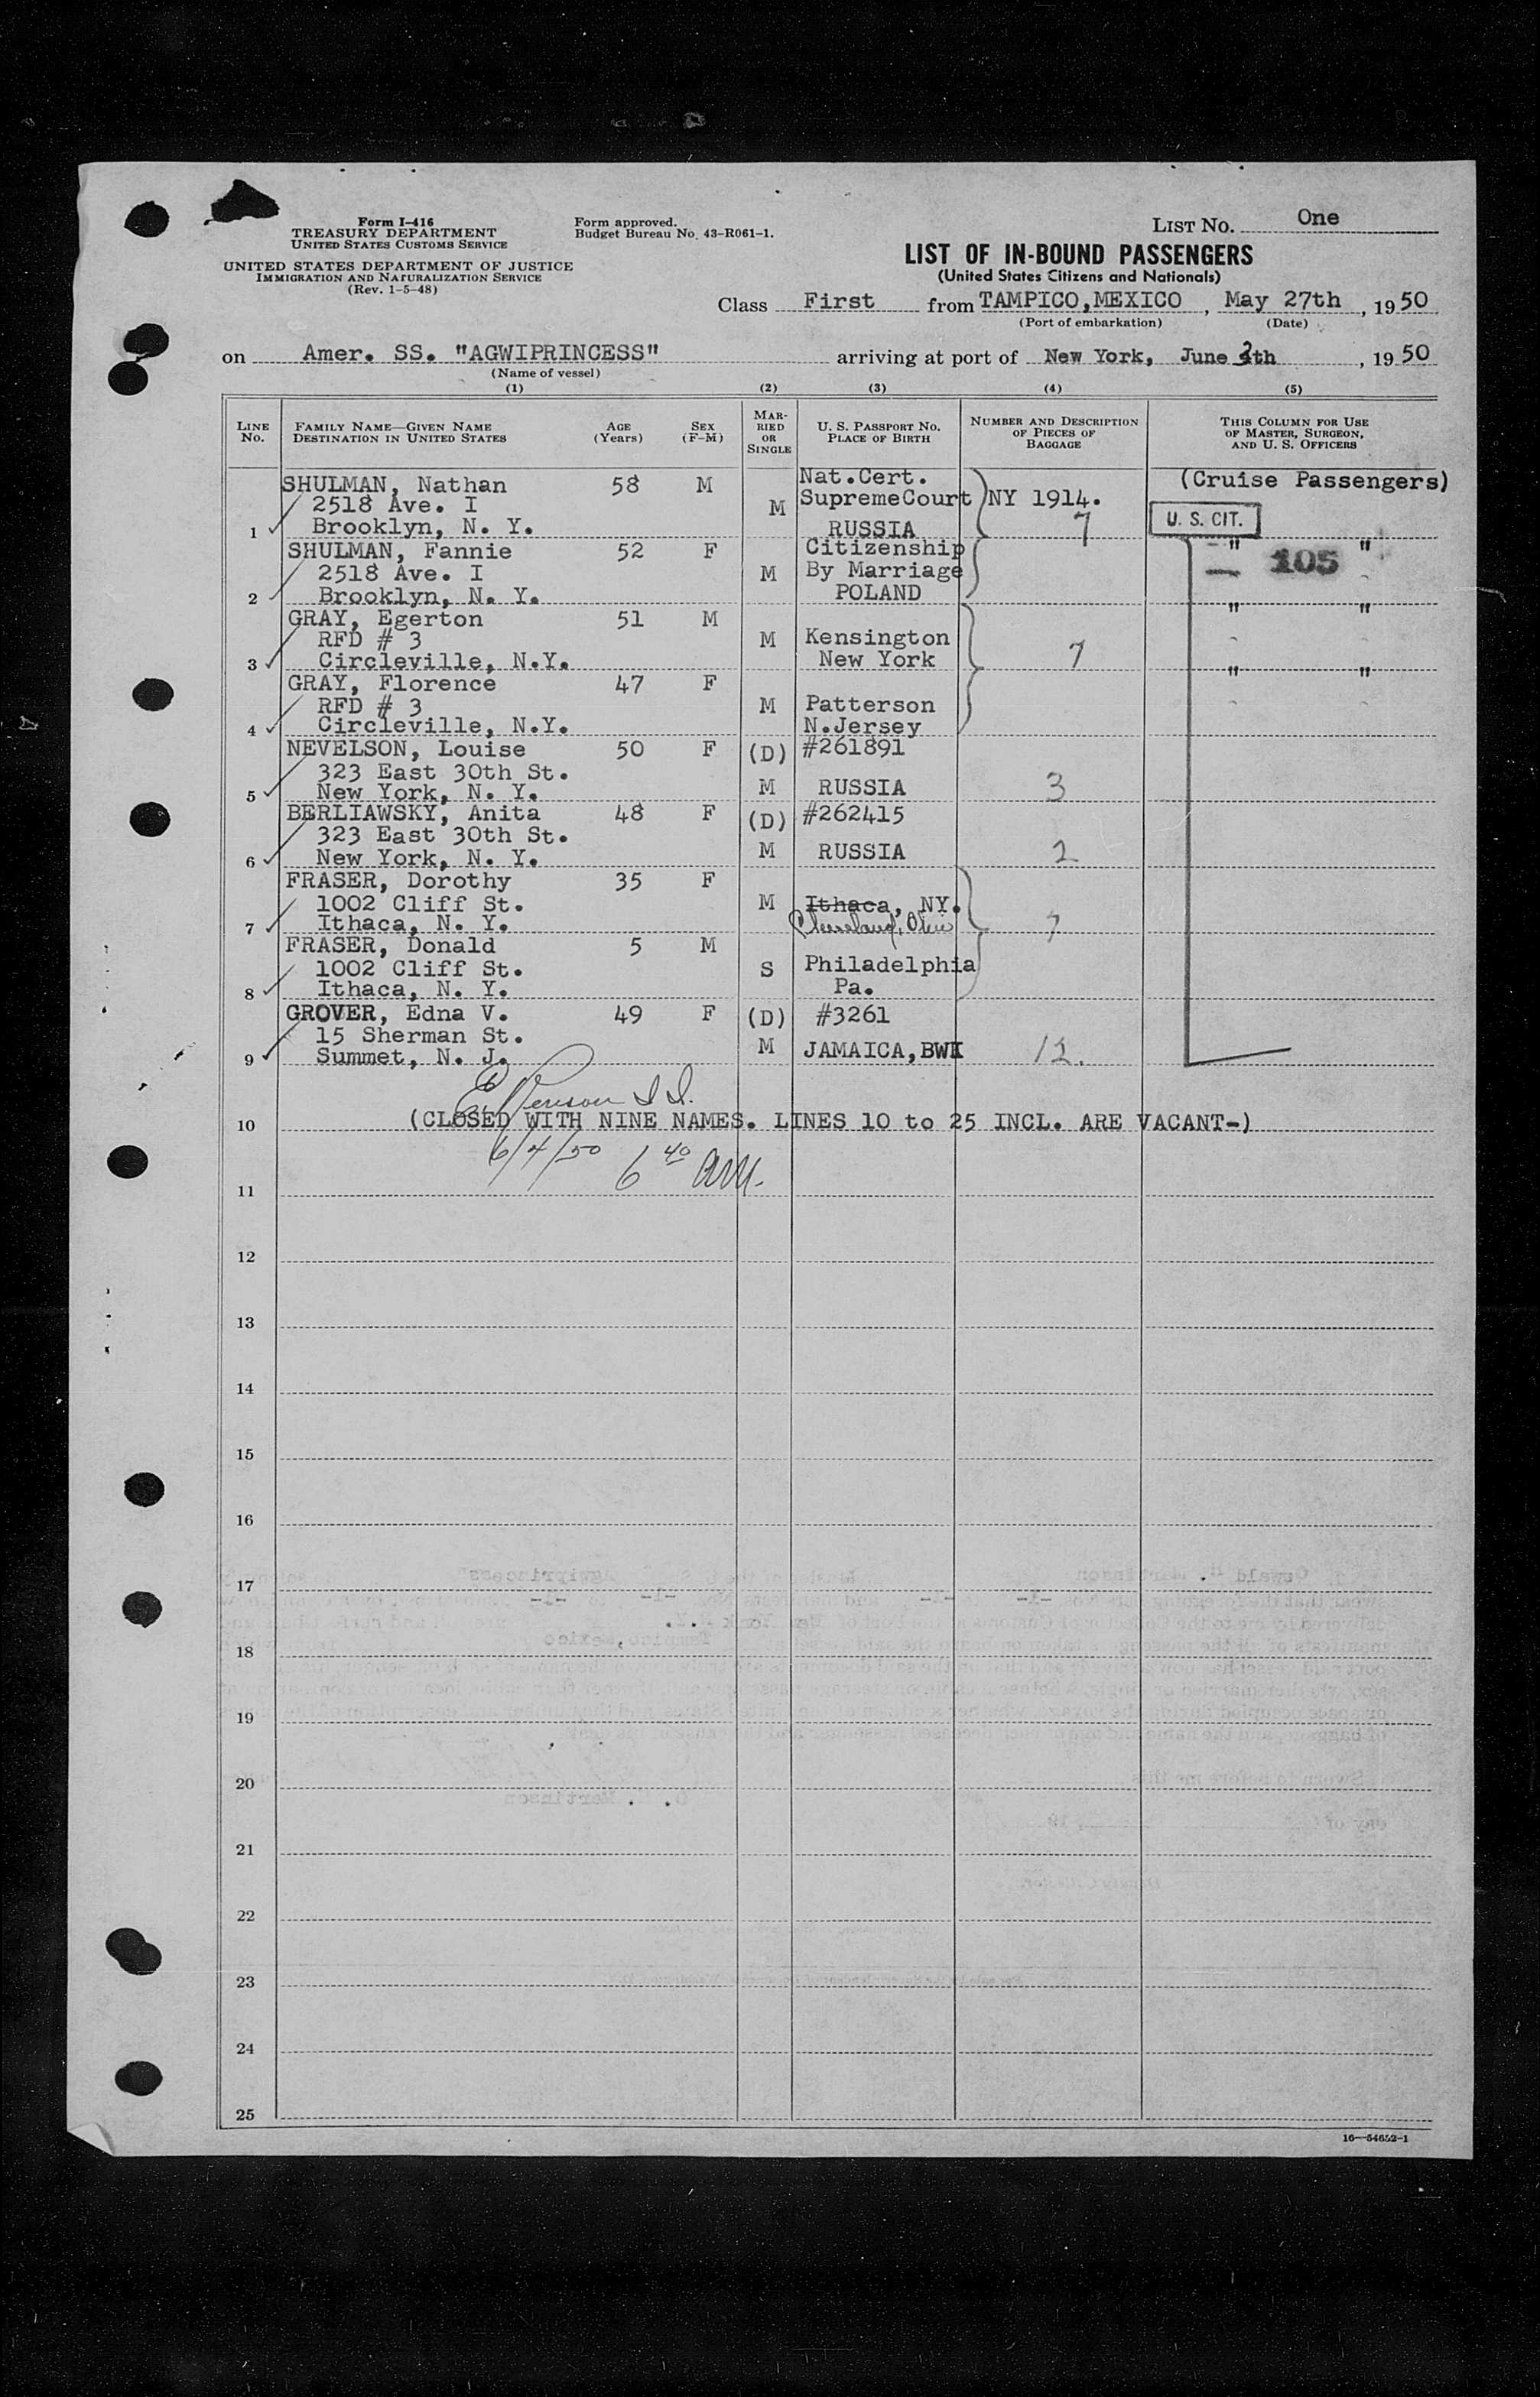 Form I-416
TREASURY DEPARTMENT
UNITED STATES CUSTOMS SERVICE
UNITED STATES DEPARTMENT OF JUSTICE
IMMIGRATION AND NATURALIZATION SERVICE
(Rev. 1-5-48)
Form approved.
Budget Bureau No. 43-R061-1.
LIST No. One
LIST OF IN-BOUND PASSENGERS
(United States Citizens and Nationals)
Class First from TAMPICO,MEXICO, May 27th, 1950
(Port of embarkation) (Date)
on Amer. SS. "AGWIPRINCESS" arriving at port of New York, June th, 1950
(Name of vessel)
(1) (2) (3) (4) (5)
LINE No. FAMILY NAME—GIVEN NAME DESTINATION IN UNITED STATES AGE (Years) SEX (F-M) MARRIED OR SINGLE U. S. PASSPORT NO. PLACE OF BIRTH NUMBER AND DESCRIPTION OF PIECES OF BAGGAGE THIS COLUMN FOR USE OF MASTER, SURGEON, AND U. S. OFFICERS
SHULMAN, Nathan 58 M Nat.Cert. (Cruise Passengers)
2518 Ave. I M SupremeCourt NY 1914.
1 Brooklyn, N. Y. RUSSIA 7 U. S. CIT.
SHULMAN, Fannie 52 F Citizenship " "
2518 Ave. I M By Marriage 105
2 Brooklyn, N. Y. POLAND
GRAY, Egerton 51 M " "
RFD # 3 M Kensington
3 Circleville, N.Y. New York 7
GRAY, Florence 47 F " "
RFD # 3 M Patterson
4 Circleville, N.Y. N.Jersey
NEVELSON, Louise 50 F (D) #261891
323 East 30th St.
5 New York, N. Y. M RUSSIA 3
BERLIAWSKY, Anita 48 F (D) #262415
323 East 30th St.
6 New York, N. Y. M RUSSIA 2
FRASER, Dorothy 35 F
1002 Cliff St. M Ithaca, NY.
7 Ithaca, N. Y. Cleveland, Ohio 7
FRASER, Donald 5 M
1002 Cliff St. S Philadelphia
8 Ithaca, N. Y. Pa.
GROVER, Edna V. 49 F (D) #3261
15 Sherman St.
9 Summet, N. J. M JAMAICA,BWI 12.
10 (CLOSED WITH NINE NAMES. LINES 10 to 25 INCL. ARE VACANT-)
6/4/50 6 40 AM.
11
12
13
14
15
16
17
18
19
20
21
22
23
24
25
16-54652-1